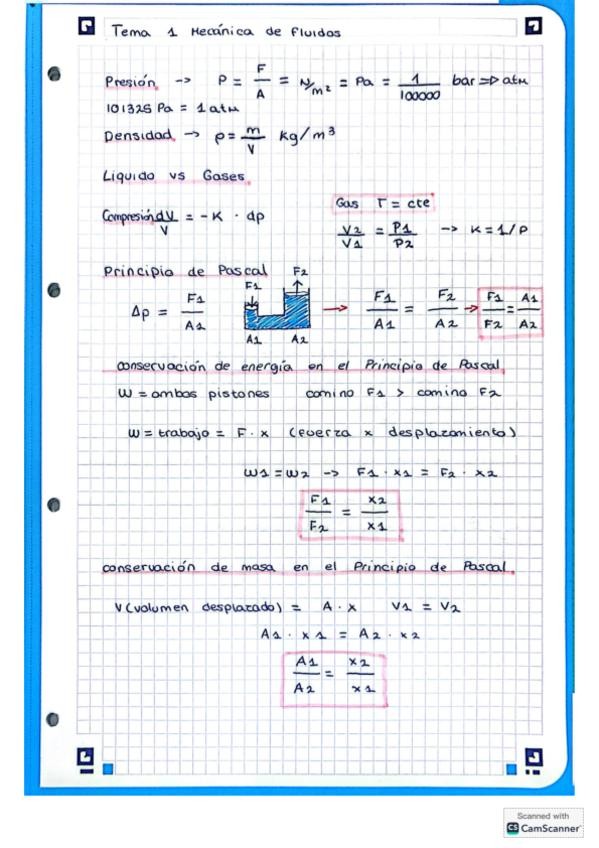 Tema 1 Mecánica de Fluidos
Presión -> P = F/A = N/m² = Pa = 1/100000 bar => atm
101325 Pa = 1 atm
Densidad -> ρ = m/V kg/m³
Liquido vs Gases
Compresión dV/V = -K · dp
Gas T = cte
V2/V1 = P1/P2 -> K = 1/P
Principio de Pascal
Δp = F1/A1
F1 F2
A1 A2
F1/A1 = F2/A2 -> F1/F2 = A1/A2
conservación de energía en el Principio de Pascal
W = ambos pistones camino F1 > camino F2
W = trabajo = F · x (fuerza x desplazamiento)
W1 = W2 -> F1 · x1 = F2 · x2
F1/F2 = x2/x1
conservación de masa en el Principio de Pascal
V (volumen desplazado) = A · x V1 = V2
A1 · x1 = A2 · x2
A1/A2 = x2/x1
Scanned with
CS CamScanner